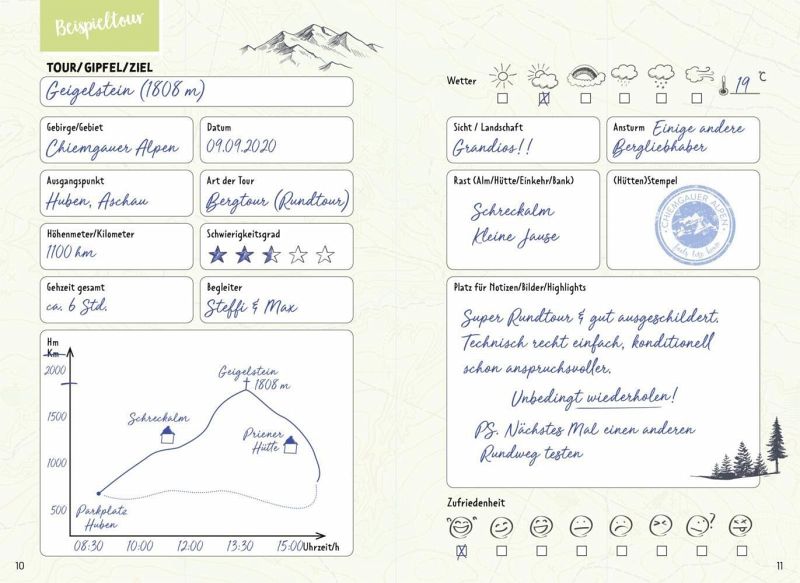 Beispieltour
TOUR/GIPFEL/ZIEL
Geigelstein (1808 m)
Gebirge/Gebiet
Chiemgauer Alpen
Datum
09.09.2020
Ausgangspunkt
Huben, Aschau
Art der Tour
Bergtour (Rundtour)
Höhenmeter/Kilometer
1100 hm
Schwierigkeitsgrad
Gehzeit gesamt
ca. 6 Std.
Begleiter
Steffi & Max
Hm
Km
2000
1500
1000
500
Geigelstein
1808 m
Schreckalm
Priener
Hütte
Parkplatz
Huben
08:30 10:00 12:00 13:30 15:00 Uhrzeit/h
10
Wetter
19 °C
Sicht / Landschaft
Grandios!!
Ansturm Einige andere
Bergliebhaber
Rast (Alm/Hütte/Einkehr/Bank)
Schreckalm
Kleine Jause
(Hütten)Stempel
CHIEMGAUER ALPEN
Platz für Notizen/Bilder/Highlights
Super Rundtour & gut ausgeschildert.
Technisch recht einfach, konditionell
schon anspruchsvoller.
Unbedingt wiederholen!
PS. Nächstes Mal einen anderen
Rundweg testen
Zufriedenheit
11